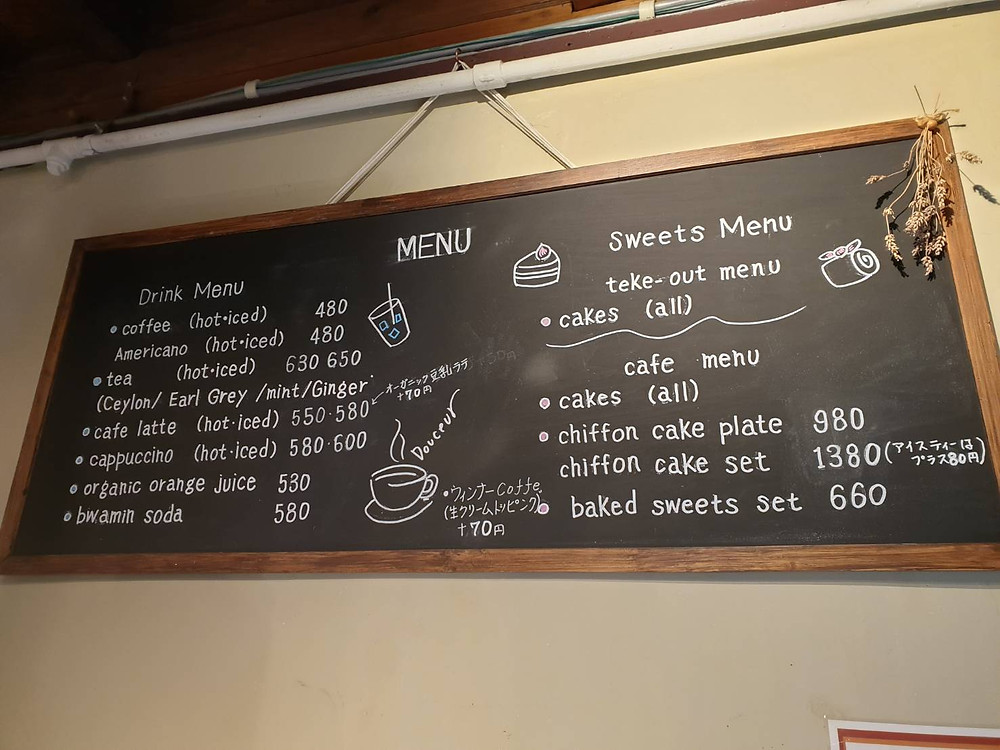 MENU
Drink Menu
• coffee (hot・iced) 480
Americano (hot・iced) 480
• tea (hot・iced) 630 650
(Ceylon/ Earl Grey /mint/Ginger
• cafe latte (hot・iced) 550・580
オーガニック豆乳ラテ
+70円
• cappuccino (hot・iced) 580・600
• organic orange juice 530
• bwamin soda 580
Douceur
•ウィンナーCoffe
(生クリームトッピング)
+70円
Sweets Menu
teke-out menu
• cakes (all)
cafe menu
• cakes (all)
• chiffon cake plate 980
chiffon cake set 1380(アイスティーは
プラス80円)
• baked sweets set 660